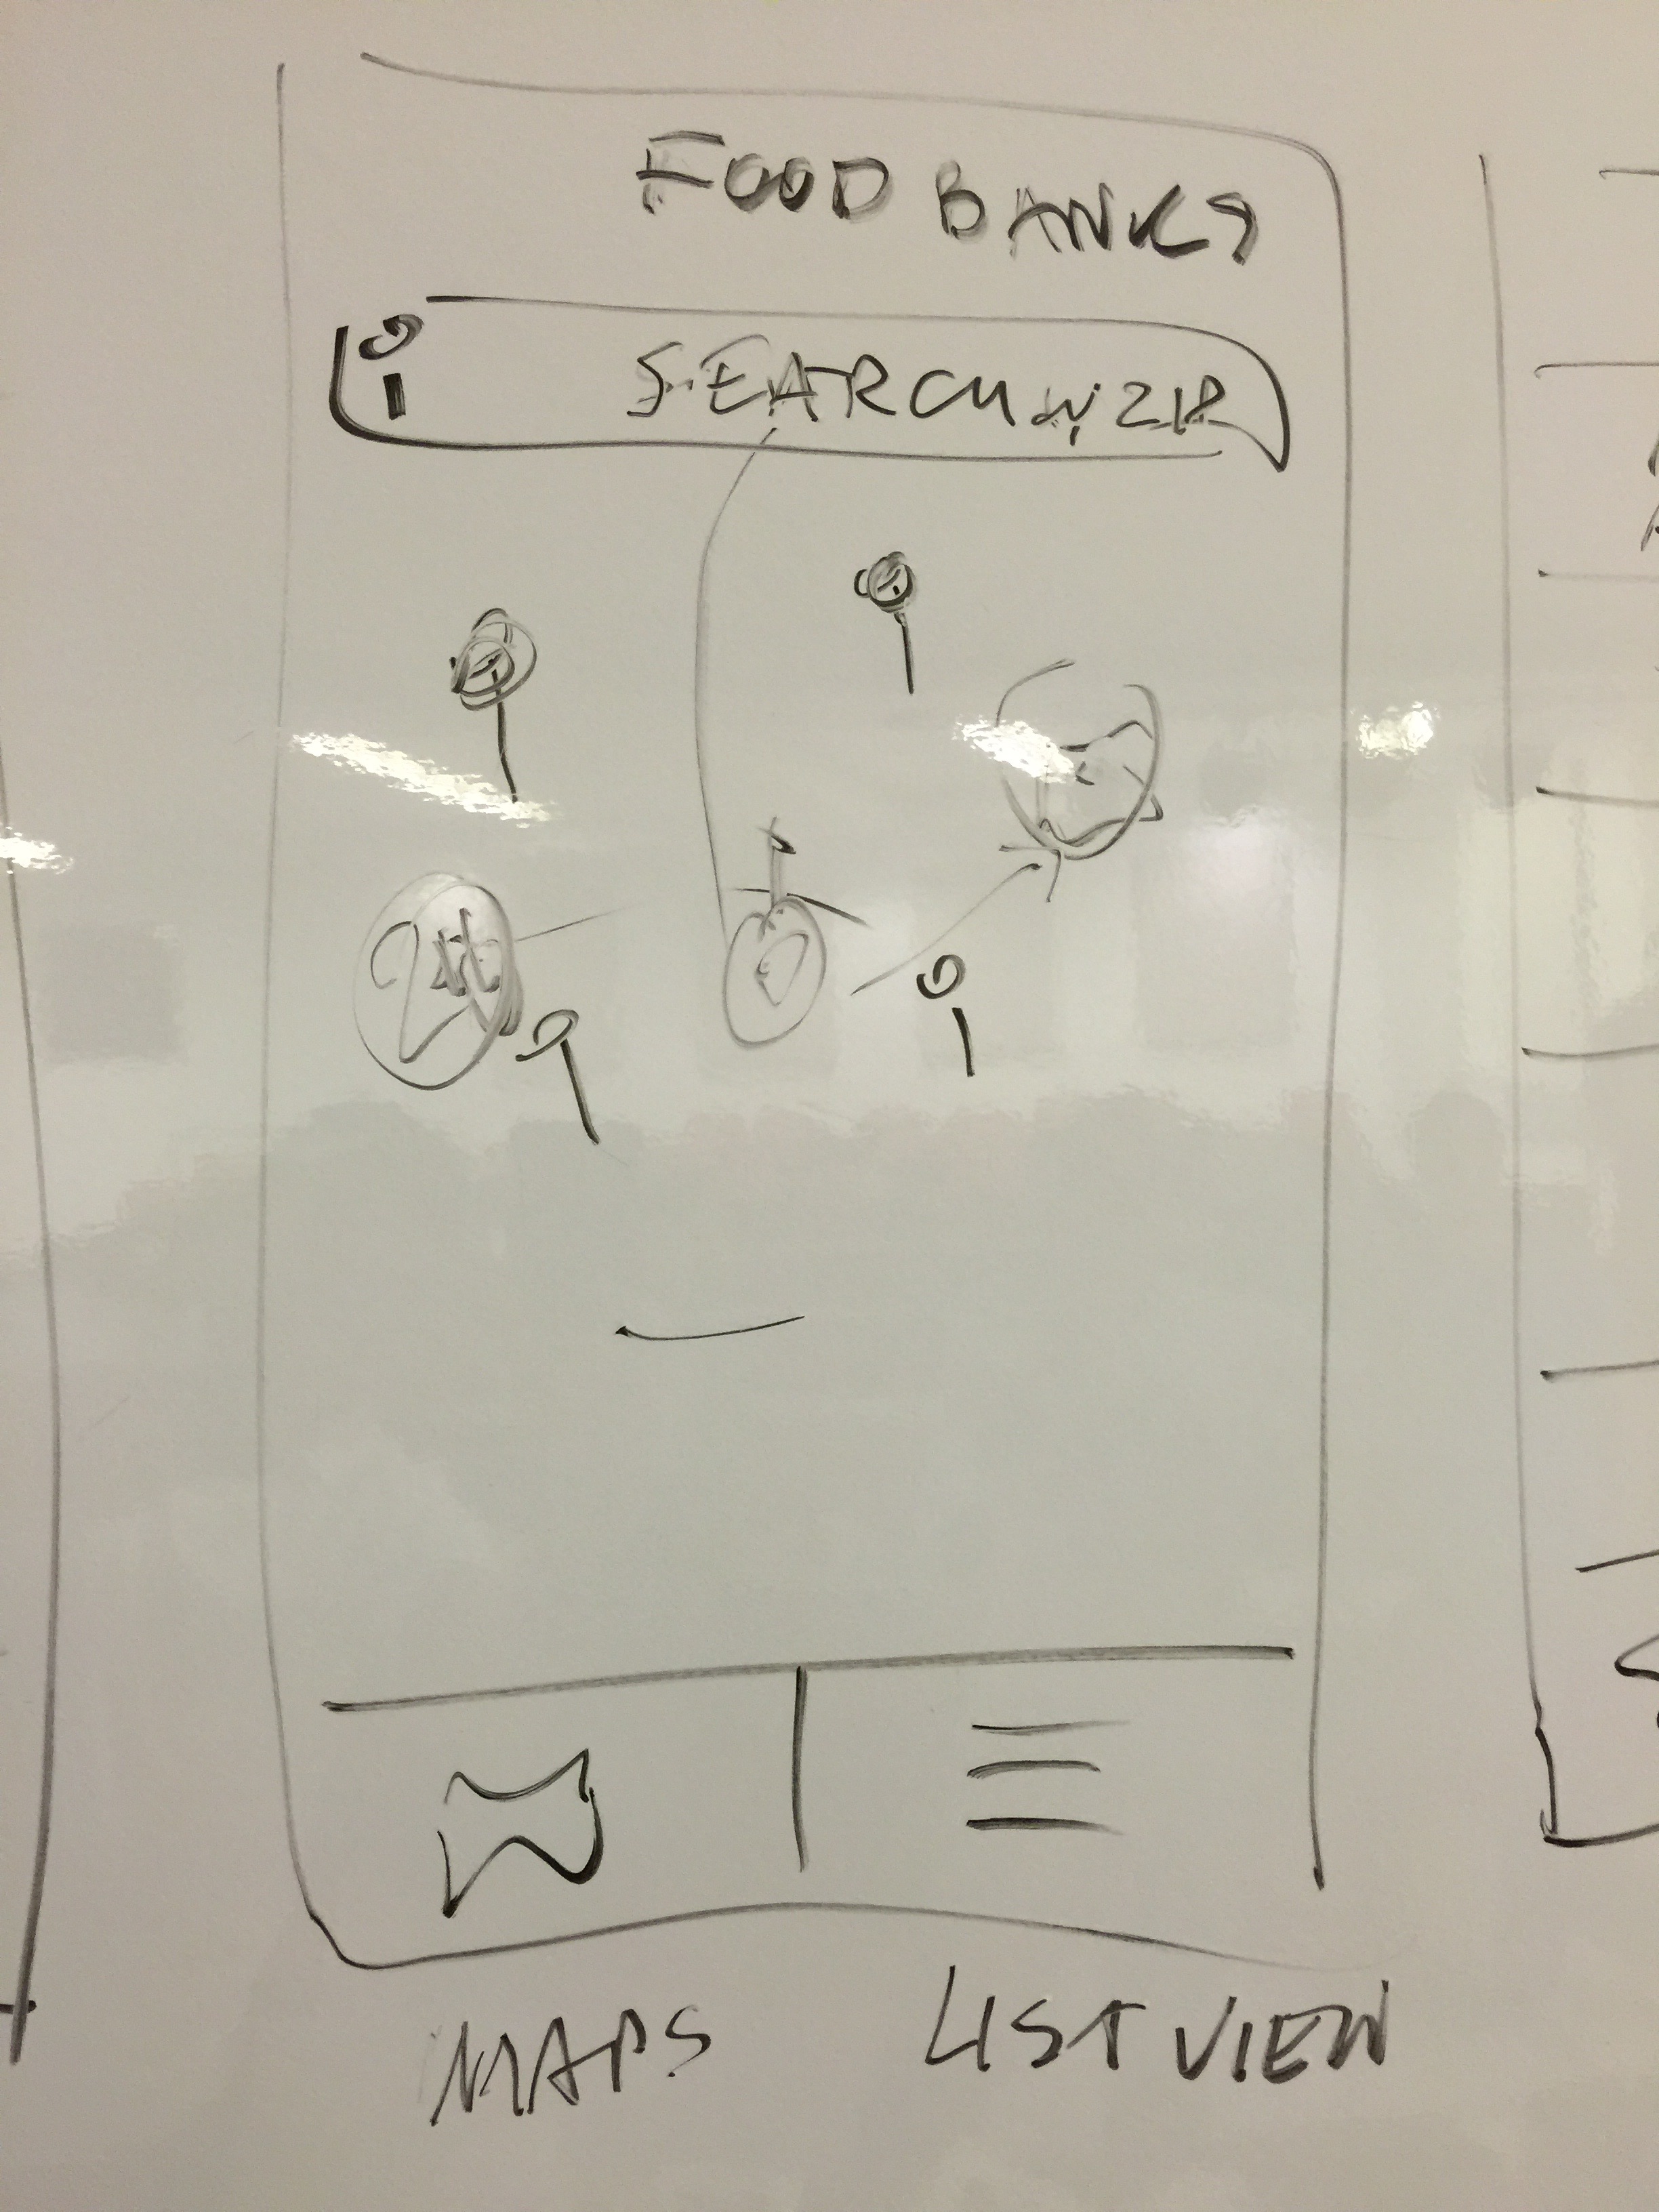 FOOD BANKS
SEARCH W ZIP
MAPS
LIST VIEW